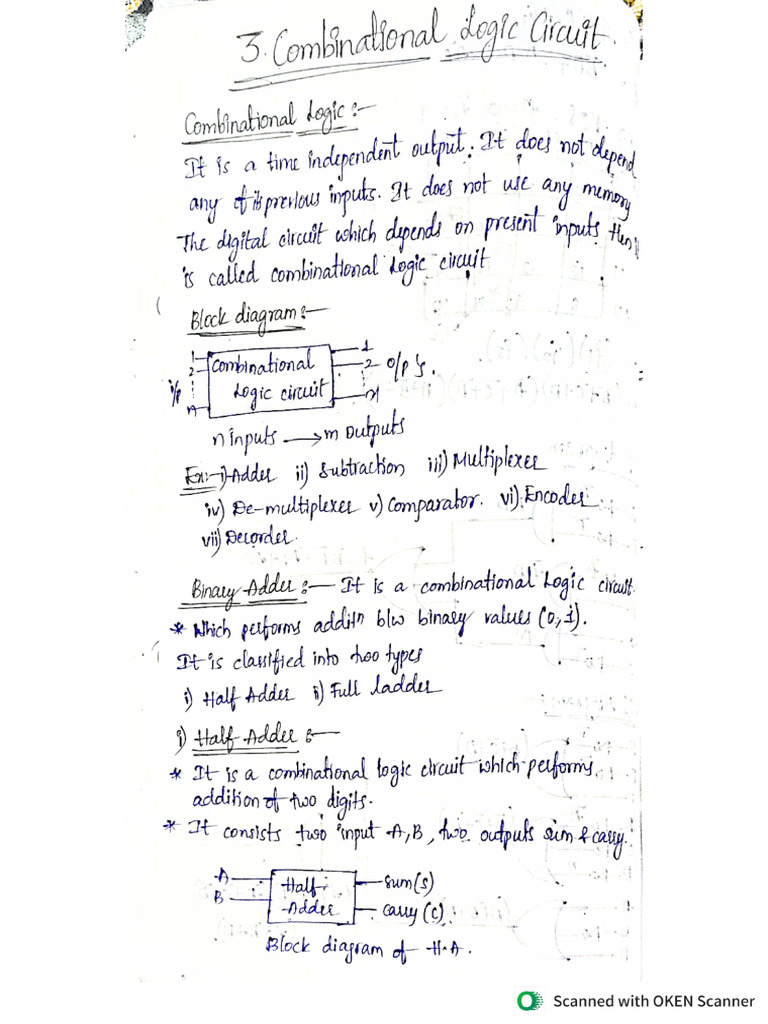 3. Combinational Logic Circuit
Combinational Logic :-
It is a time independent output. It does not depend
any of its previous inputs. It does not use any memory
The digital circuit which depends on present inputs then
is called combinational Logic circuit
Block diagram :-
1
2
n
i/p
Combinational
Logic circuit
1
2
n
o/p's.
n inputs → m outputs
Ex:- i) Adder ii) Subtraction iii) Multiplexer
iv) De-multiplexer v) Comparator. vi) Encoder
vii) Decorder.
Binary Adder :- It is a combinational Logic circuit
* Which performs additn b/w binary values (0,1).
It is classified into two types
i) Half Adder ii) Full ladder
i) Half Adder :-
* It is a combinational logic circuit which performs
addition of two digits.
* It consists two input A, B, two outputs sum & carry.
A
B
Half
Adder
sum(s)
carry (c)
Block diagram of H.A.
Scanned with OKEN Scanner